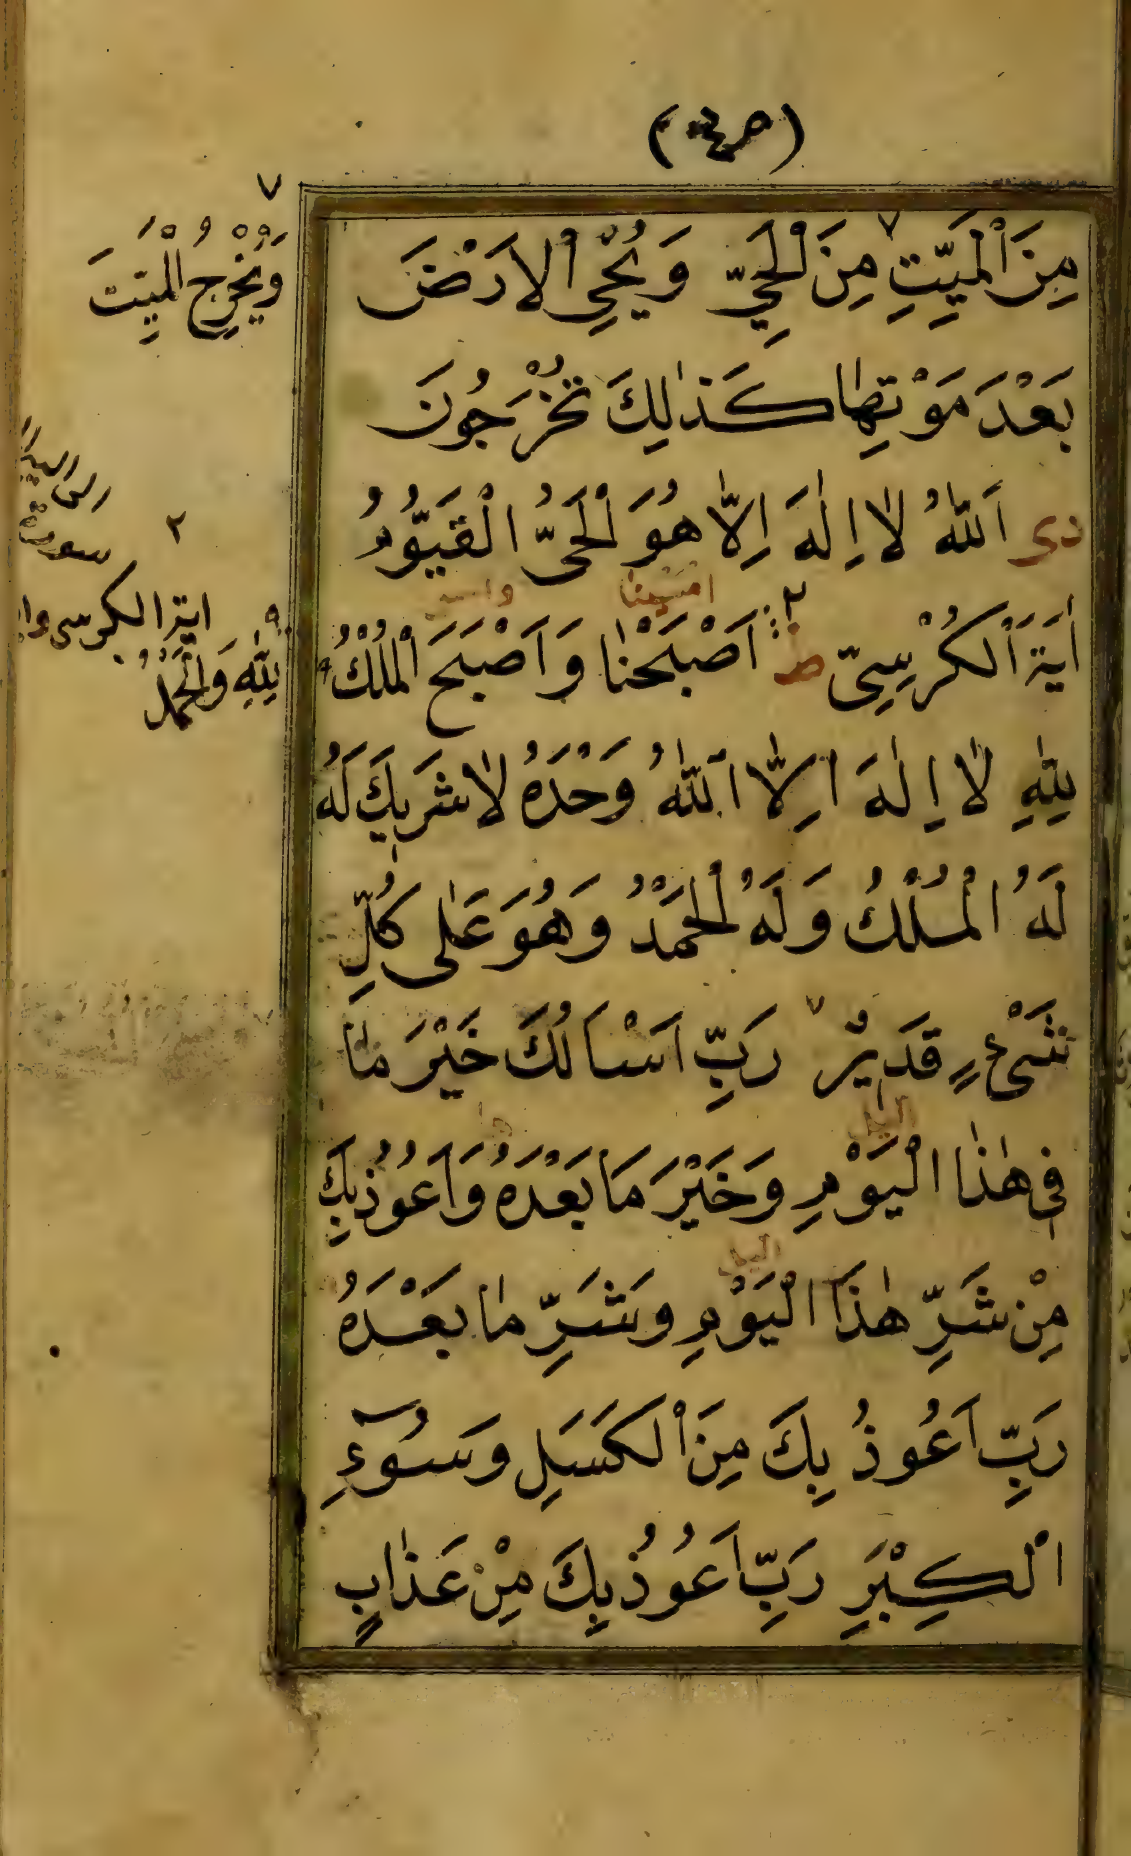 مِنَ الْمَيِّتِ ٧ مِنَ الْحَيِّ وَيُحْيِ الْاَرْضَ
بَعْدَ مَوْتِهٰا كَذٰلِكَ تُخْرَجُونَ
دى اَللّٰهُ لٰا اِلٰهَ اِلّٰا هُوَ الْحَىُّ الْقَيُّومُ
اٰيَةَ الْكُرْسِىِّ ط ٢ اَصْبَحْنٰا وَاَصْبَحَ الْمُلْكُ ٩
لِلّٰهِ لٰا اِلٰهَ اِلّٰا اللّٰهُ وَحْدَهُ لٰا شَرِيكَ لَهُ
لَهُ الْمُلْكُ وَلَهُ الْحَمْدُ وَهُوَ عَلٰى كُلِّ
شَىْءٍ قَدِيْرٌ ٧ رَبِّ اَسْاَلُكَ خَيْرَ مٰا
فِى هٰذٰا الْيَوْمِ وَخَيْرَ مَا بَعْدَهُ وَاَعُوذُ بِكَ
مِنْ شَرِّ هٰذَا الْيَوْمِ وَشَرِّ مٰا بَعْدَهُ
رَبِّ اَعُوذُ بِكَ مِنَ الْكَسَلِ وَسُوٓءِ
الْكِبَرِ رَبِّ اَعُوذُ بِكَ مِنْ عَذٰابٍ
٧
وَيُخْرِجُ الْمَيِّتَ
٢
سورة
اية الكرسى
٩
لِلّٰهِ وَالْحَمْدُ
امسينا
اليل
اليل